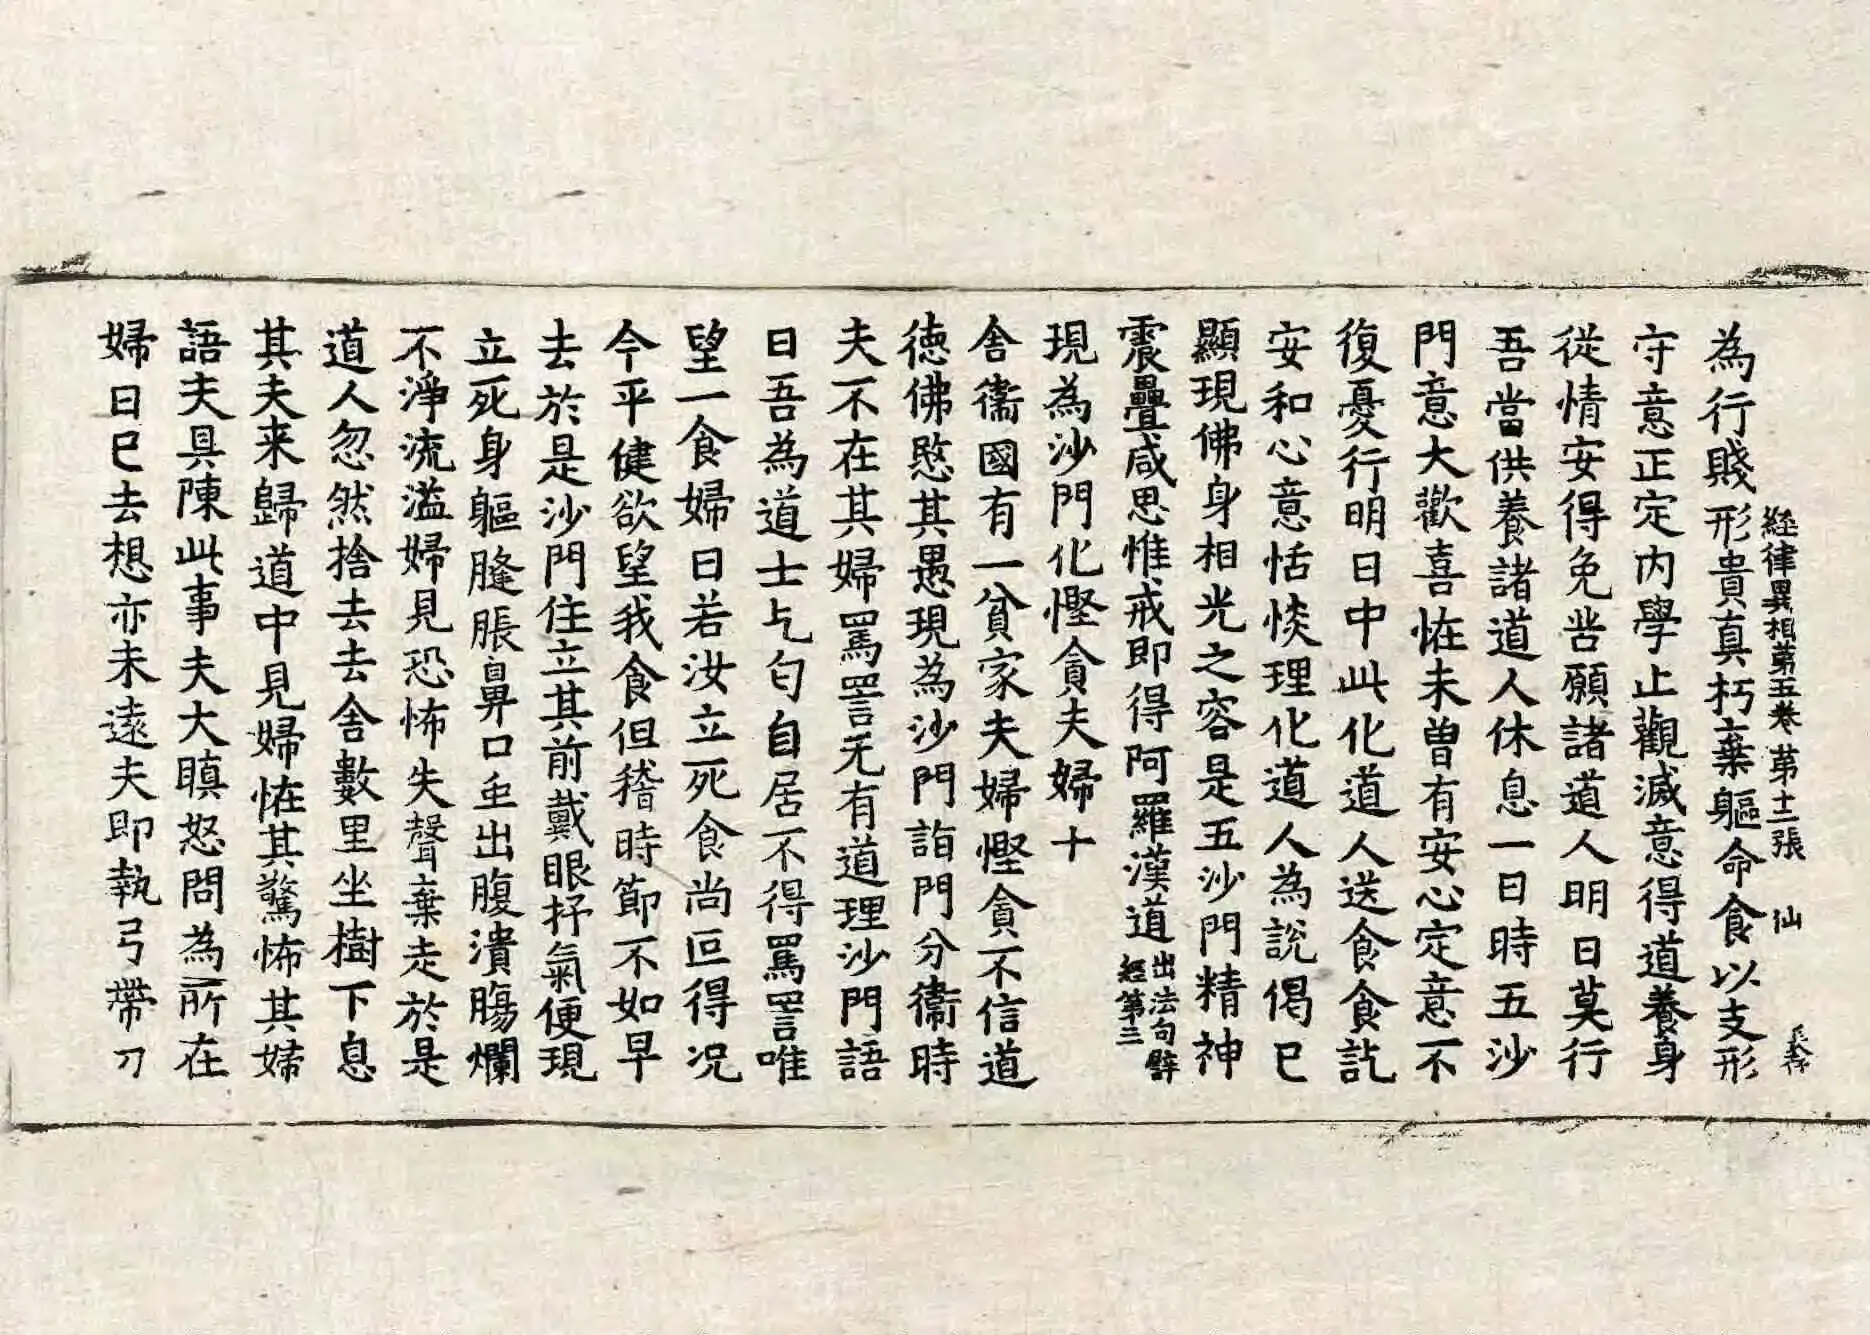 經律異相第五卷 第十二張 仙
為行賤形貴真朽棄軀命食以支形
守意正定内學止觀滅意得道養身
從情安得免苦願諸道人明日莫行
吾當供養諸道人休息一日時五沙
門意大歡喜恠未曾有安心定意不
復憂行明日中此化道人送食食訖
安和心意恬惔理化道人為說偈已
顯現佛身相光之容是五沙門精神
震疊咸思惟戒即得阿羅漢道出法句譬經第三
現為沙門化慳貪夫婦十
舍衞國有一貧家夫婦慳貪不信道
德佛愍其愚現為沙門詣門分衞時
夫不在其婦罵詈无有道理沙門語
曰吾為道士乞匃自居不得罵詈唯
望一食婦曰若汝立死食尚叵得况
今平健欲望我食但稽時節不如早
去於是沙門住立其前戴眼抒氣便現
立死身軀膖脹鼻口虫出腹潰腸爛
不淨流溢婦見恐怖失聲棄走於是
道人忽然捨去去舍數里坐樹下息
其夫来歸道中見婦恠其驚怖其婦
語夫具陳此事夫大瞋怒問為所在
婦曰已去想亦未遠夫即執弓帶刀